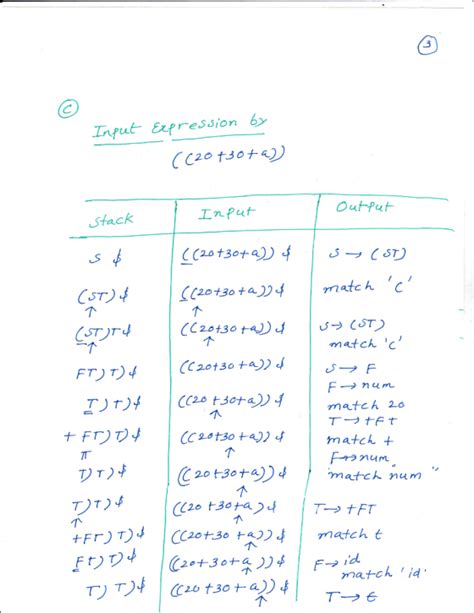 3
C
Input Expression by
((20+30+a))
Stack Input Output
S $ ((20+30+a)) $ S → (ST)
(ST) $ ((20+30+a)) $ match '('
↑ ↑
(ST)T $ ((20+30+a)) $ S → (ST)
↑ ↑ match '('
FT)T) $ ((20+30+a)) $ S → F
↑ F → num
T)T) $ ((20+30+a)) $ match 20
↑ T → +Ft
+FT)T) $ ((20+30+a)) $ match +
↑ F → num
T)T) $ ((20+30+a)) $ "match num"
↑
T)T) $ ((20+30+a) $ T → +FT
↑ ↑
+FT)T) $ ((20+30+a)) $ match t
↑
FT)T) $ ((20+30+a)) $ F → id
↑ match 'id'
T)T) $ ((20+30+a)) $ T → ε
↑